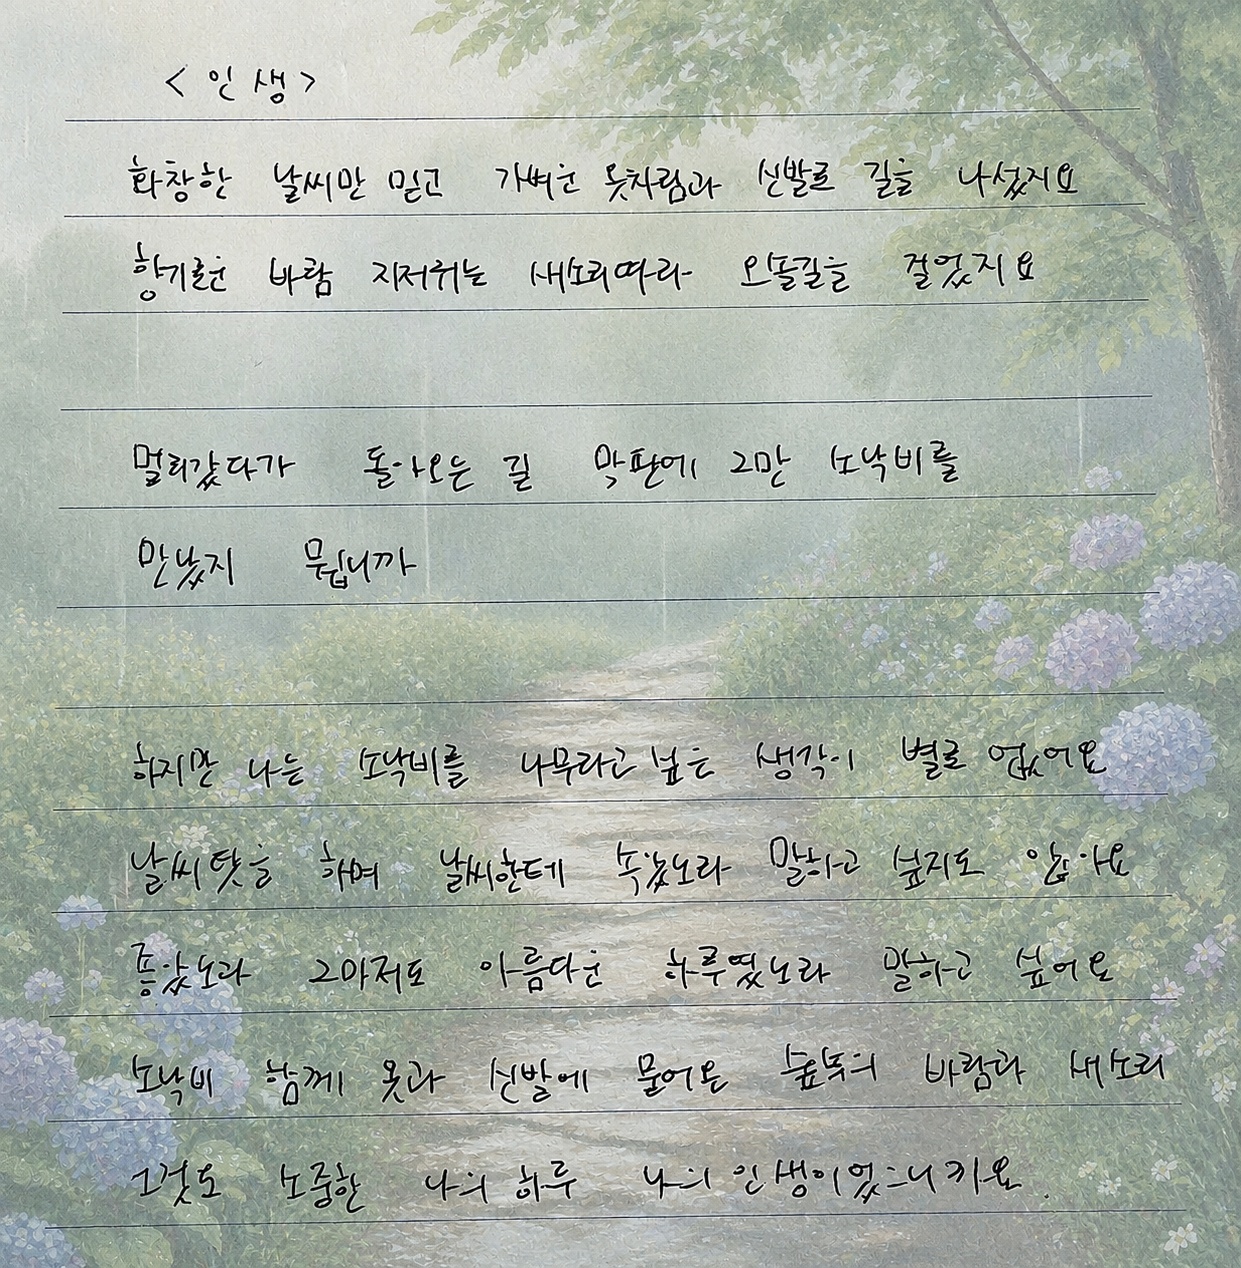 <인생>
화창한 날씨만 믿고 가벼운 옷차림과 신발로 길을 나섰지요
향기로운 바람 지저귀는 새소리따라 오솔길을 걸었지요
멀리갔다가 돌아오는 길 막판에 그만 소낙비를
만났지 뭡니까
하지만 나는 소낙비를 나무라고 싶은 생각이 별로 없어요
날씨탓을 하며 날씨한테 속았노라 말하고 싶지도 않아요
좋았노라 그마저도 아름다운 하루였노라 말하고 싶어요
소낙비 함께 옷과 신발에 묻어온 숲속의 바람과 새소리
그것도 소중한 나의 하루 나의 인생이었으니까요.